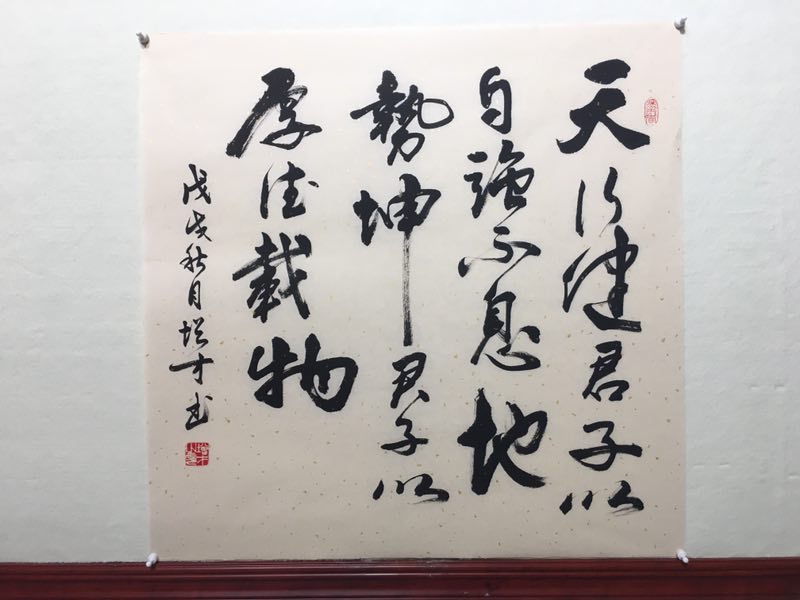 天行健君子以
自强不息地
勢坤君子以
厚德載物
戊戌秋月培才书